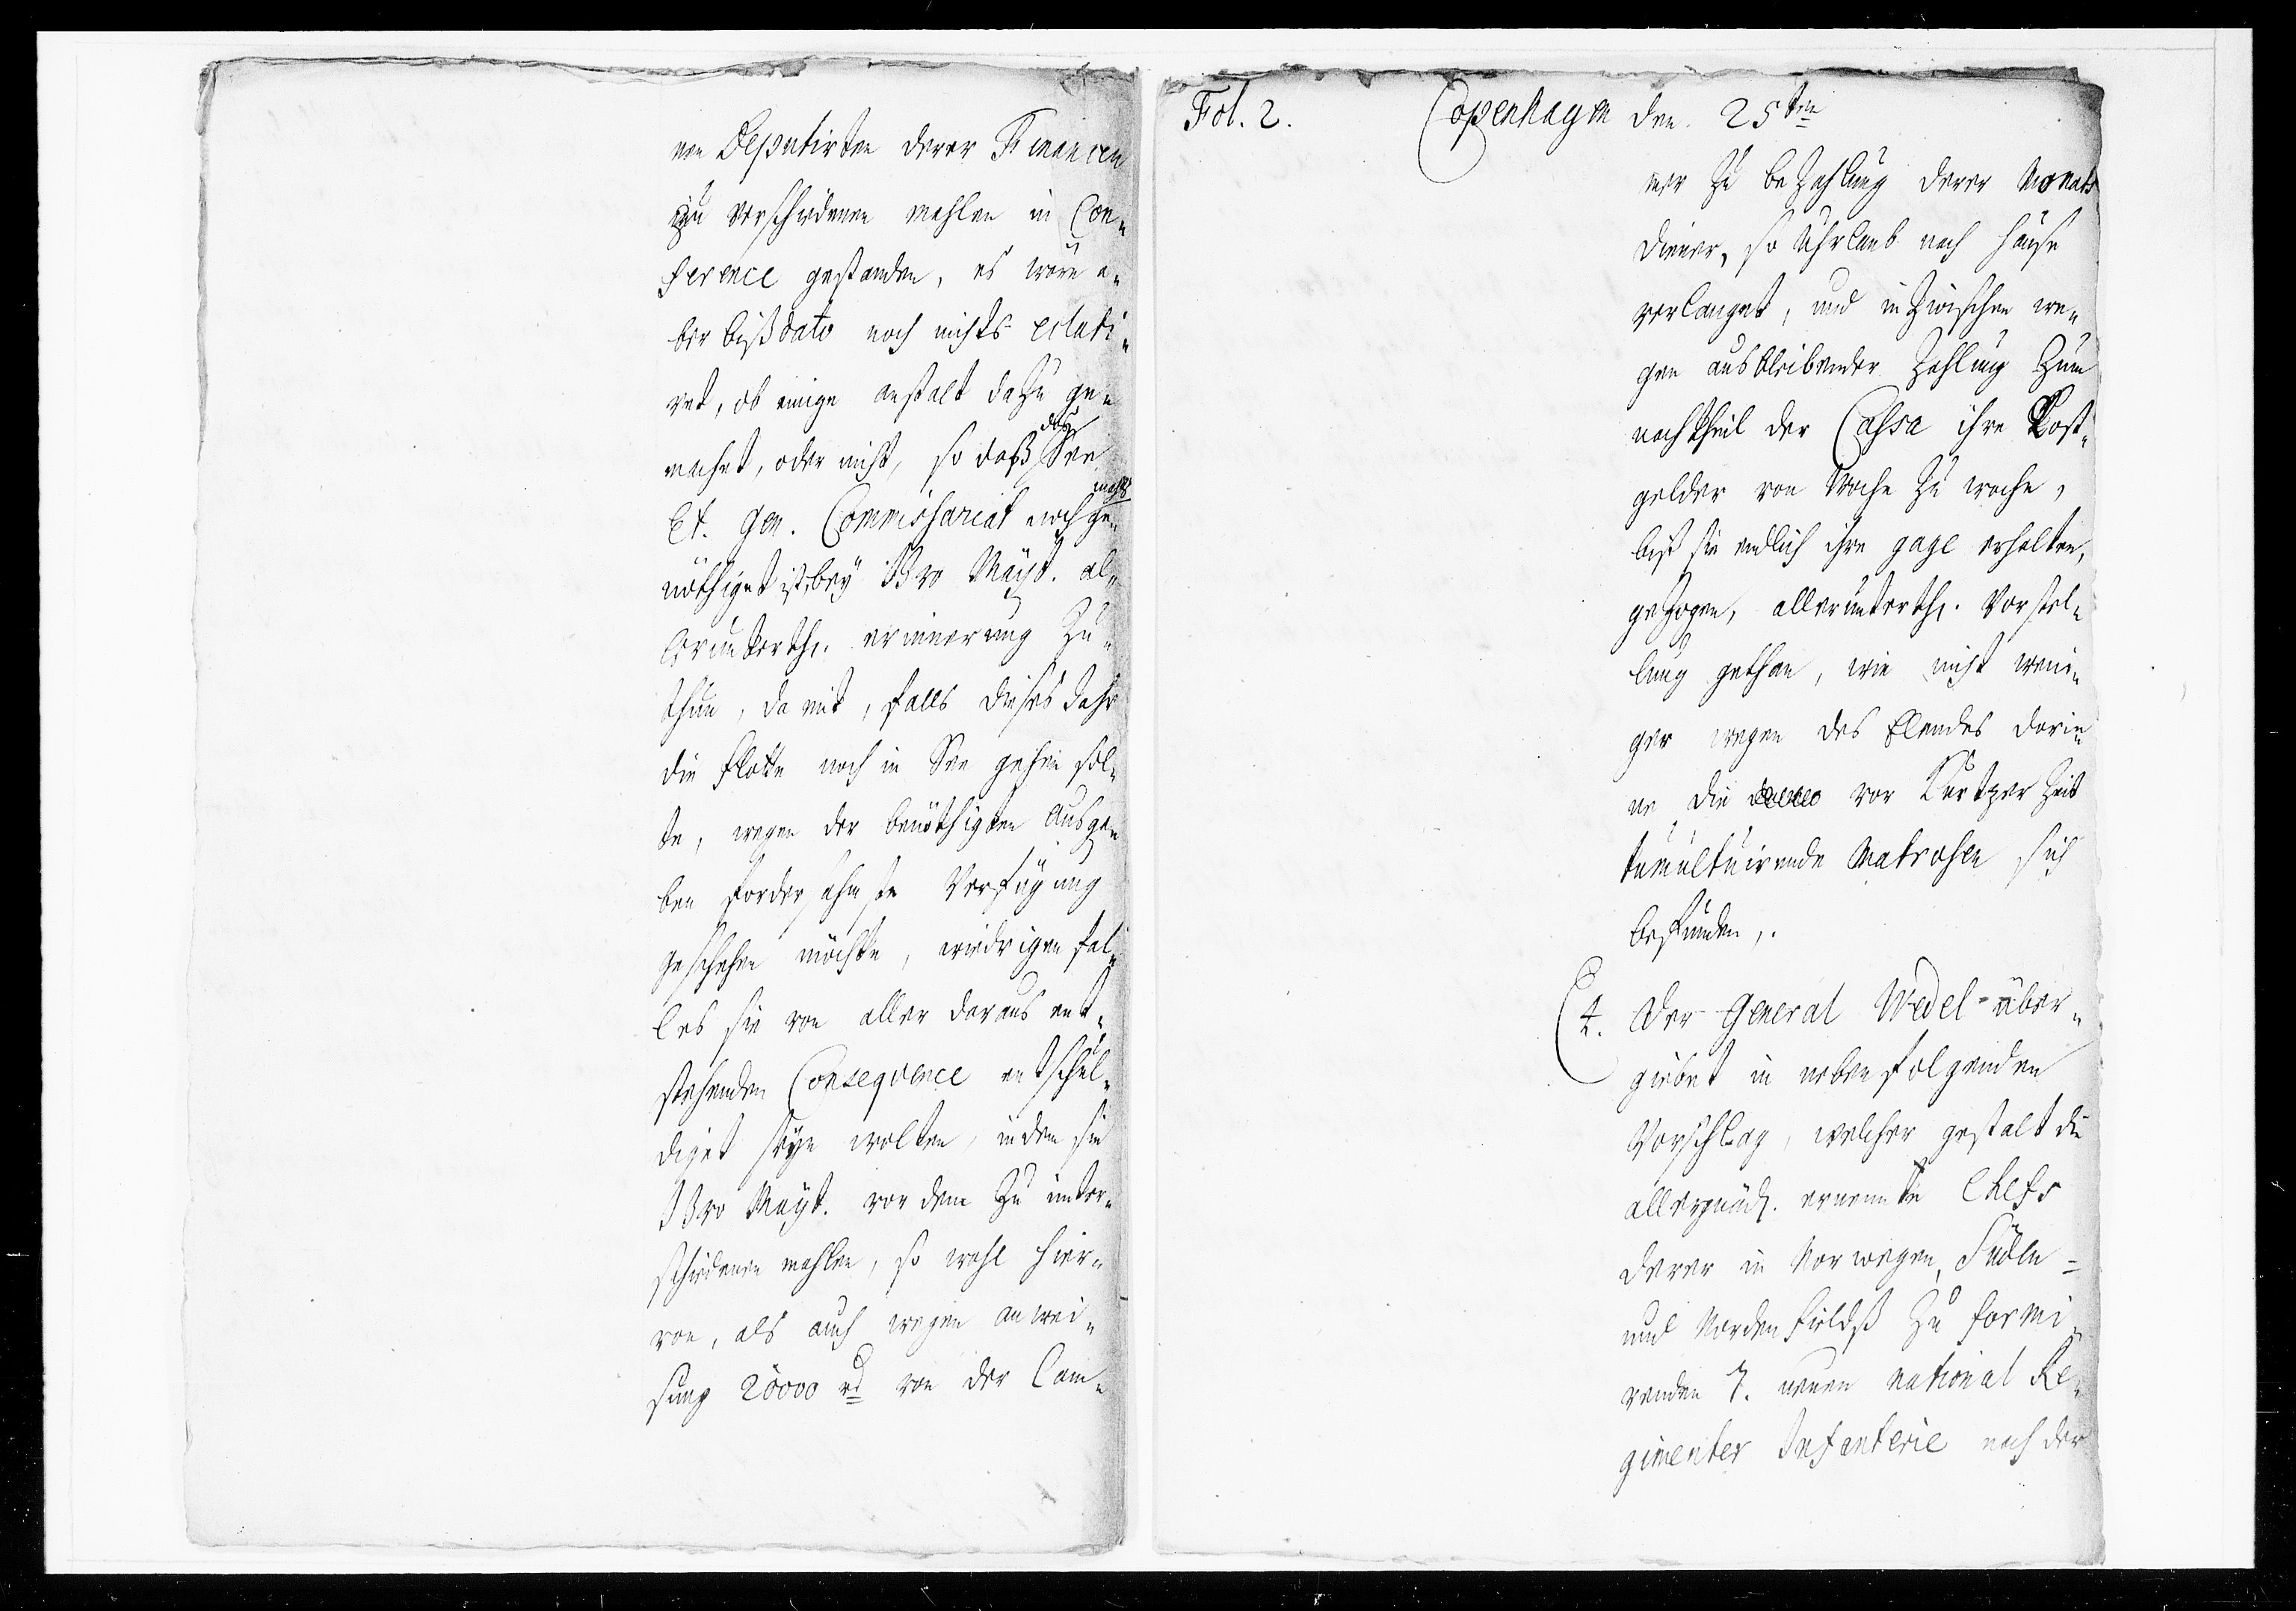 nen Deputirten derer Financen
zu verschiedenen mahlen in Con„
ference gestanden, es wäre a„
ber bißdato noch nichts eclati„
ret, ob einige anstalt dazu ge„
machet, oder nicht, so daß das See
Et. Gen. Commissariat nochmahls ge„
nöthiget ist, bey Ihro Mayt. al„
lerunterth. erinnerung zu„
thun, damit, falls dieses Jahr
die flotte noch in See gehen sol„
te, wegen der benöthigten Ausga„
ben fordersahmste Verfügung
geschehen möchte, wiedrigen fal„
les sie von aller daraus ent„
stehenden Consequence entschul„
diget seyn wolten, indem sie
Ihro Mayt. vor dem zu unter„
schiedenen mahlen, so wohl hier„
von, als auch wegen anwei„
sung 20000 rd von der Cam„
Fol. 2. Copenhagen den 25ten
mer zu bezahlung derer Monats
diener, so Uhrlaub nach hause
verlanget, und inzwischen we„
gen ausbleibender Zahlung zum
nachtheil der Cassa ihre Kost„
gelder von Woche zu woche,
biß sie endlich ihre gage erhalten,
gezogen, allerunterth. Vorstel„
lung gethan, wie nicht weni„
ger wegen des Elendes darin„
ne die vor Kurtzer Zeit
tumultuirende Matrosen sich
befunden.
4. Der General Wedel über„
giebet in nebenfolgenden
Vorschlag, welcher gestalt die
allergnäd. ernennte Chefs
derer in Norwegen, Süden=
und Nordenfieldß zu formi„
renden 7. neuen national Re„
gimenter Infanterie nach der